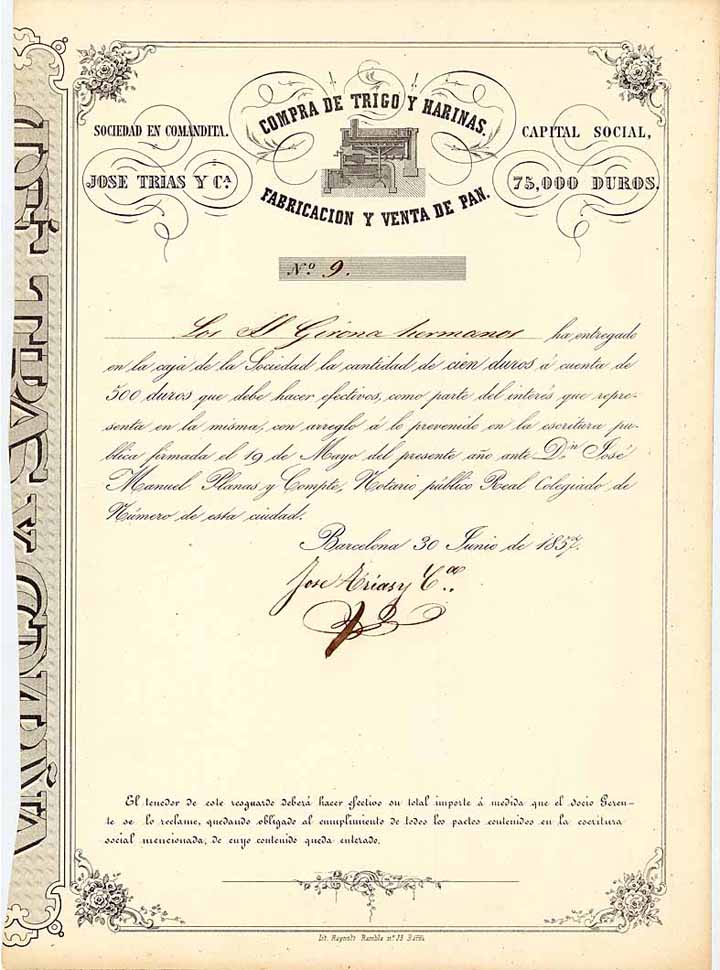 COMPRA DE TRIGO Y HARINAS.
SOCIEDAD EN COMANDITA.
CAPITAL SOCIAL,
JOSE TRIAS Y Cª
75,000 DUROS.
FABRICACION Y VENTA DE PAN.
Nº 9.
Los SS Girona hermanos ha entregado
en la caja de la Sociedad la cantidad de cien duros á cuenta de
500 duros que debe hacer efectivos, como parte del interés que repre-
senta en la misma, con arreglo á lo prevenido en la escritura pu-
blica firmada el 19 de Mayo del presente año ante Dn José
Manuel Planas y Compte, Notario público Real Colegiado de
Número de esta ciudad.
Barcelona 30 Junio de 1857.
Jose Trias y Cia.
El tenedor de este resguardo deberá hacer efectivo su total importe á medida que el socio Geren-
te se lo reclame, quedando obligado al cumplimiento de todos los pactos contenidos en la escritura
social mencionada, de cuyo contenido queda enterado.
Lit. Reynolt Rambla nº 23 Barña